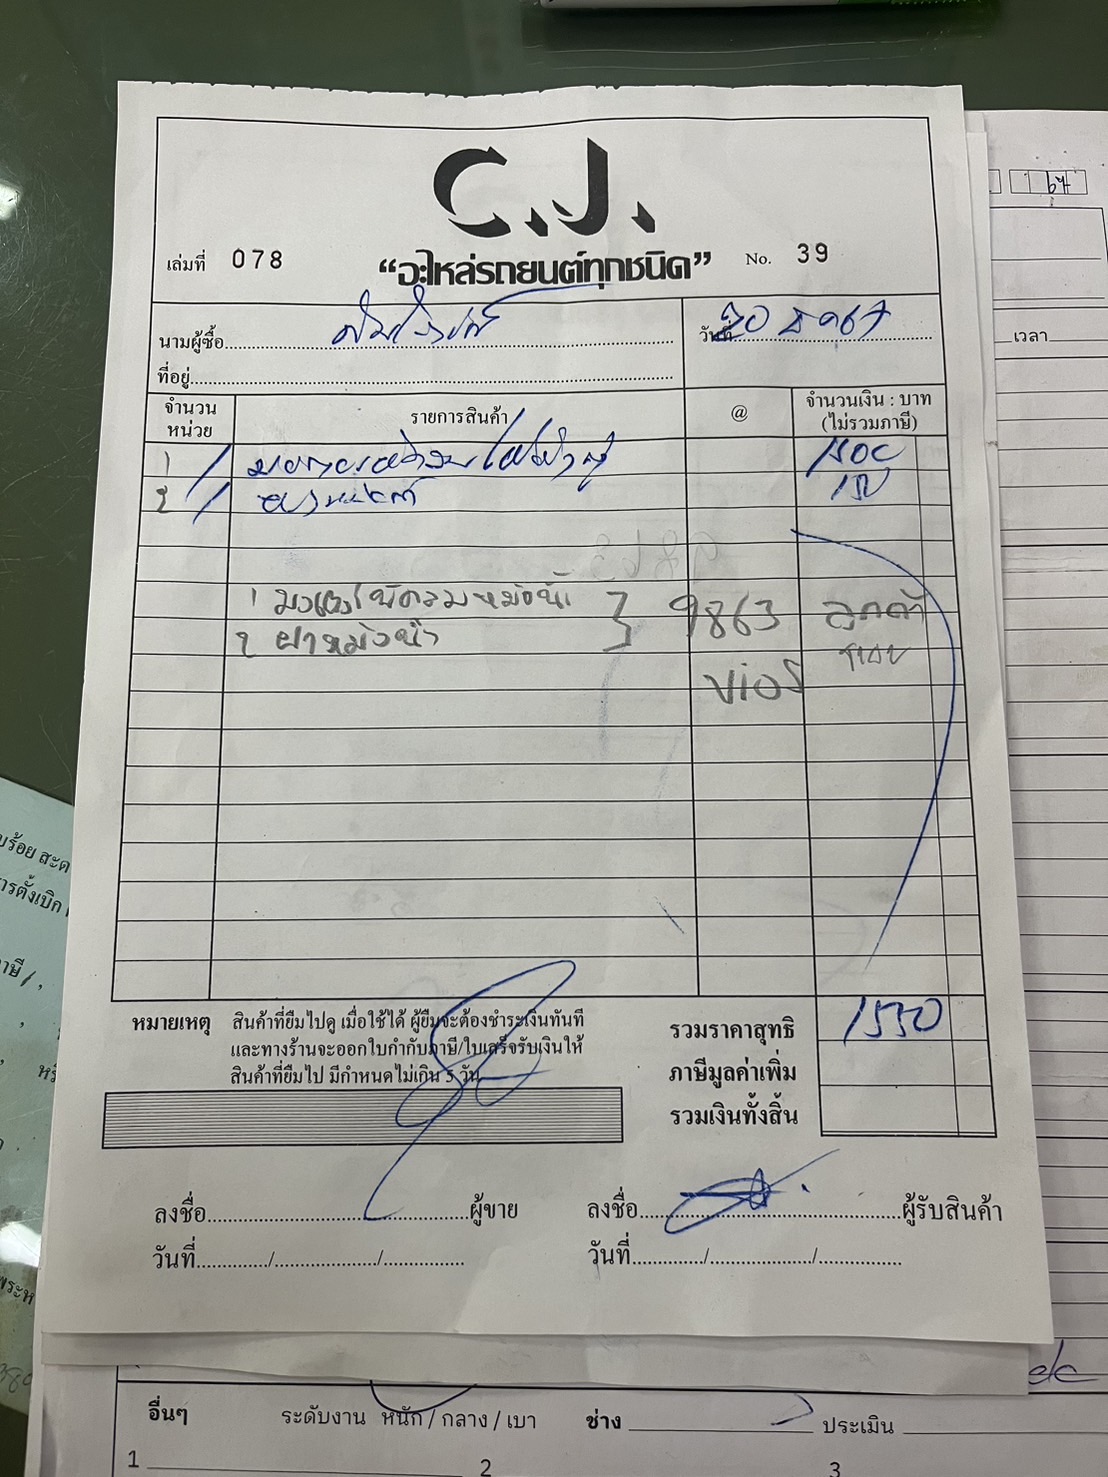 C.J.
เล่มที่ 078 “อะไหล่รถยนต์ทุกชนิด” No. 39
นามผู้ซื้อ
วันที่ 20 ธค 67
ที่อยู่
จำนวน หน่วย รายการสินค้า @ จำนวนเงิน : บาท (ไม่รวมภาษี)
1 / 1500
2 /
1 มอเตอร์พัดลมหม้อน้ำ } 9863 ลูกค้า
2 ฝาหม้อน้ำ
vios
หมายเหตุ สินค้าที่ยืมไปดู เมื่อใช้ได้ ผู้ยืมจะต้องชำระเงินทันที
และทางร้านจะออกใบกำกับภาษี/ใบเสร็จรับเงินให้
สินค้าที่ยืมไป มีกำหนดไม่เกิน 5 วัน
รวมราคาสุทธิ
ภาษีมูลค่าเพิ่ม
รวมเงินทั้งสิ้น
ลงชื่อ ผู้ขาย ลงชื่อ ผู้รับสินค้า
วันที่ / / วันที่ / /
67
เวลา
อื่นๆ ระดับงาน หนัก / กลาง / เบา ช่าง ประเมิน
1 2 3